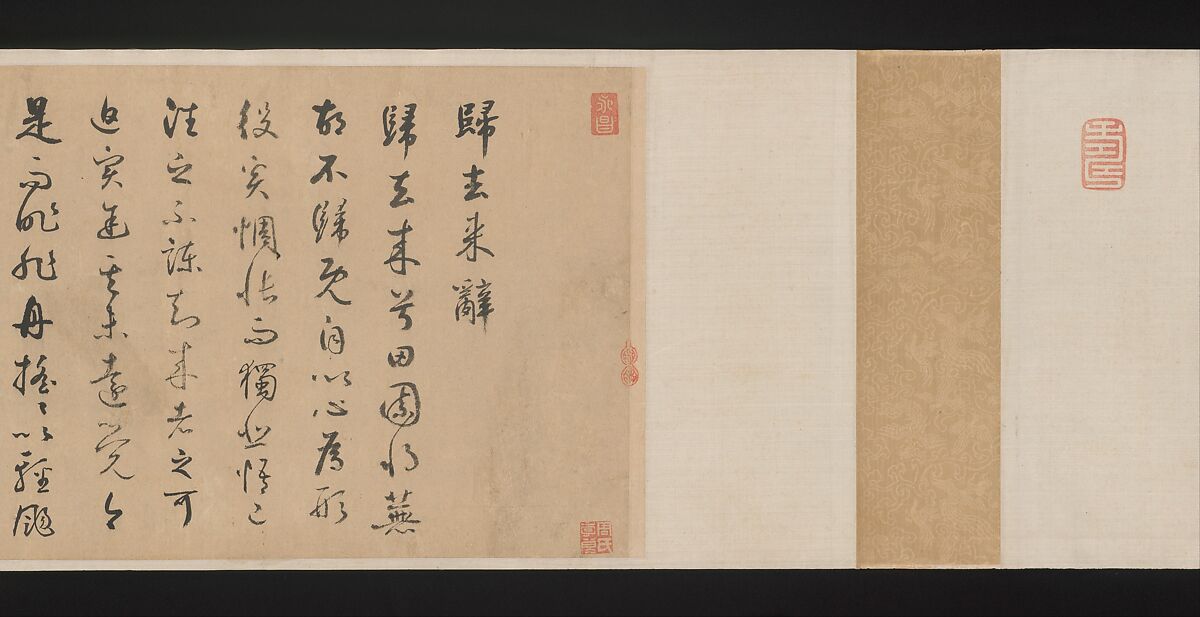 歸去来辭
歸去来兮田園将蕪
胡不歸既自以心為形
役奚惆悵而獨悲悟已
往之不諫知来者之可
追實迷其未遠覺今
是而昨非舟搖〻以輕颺
永昌